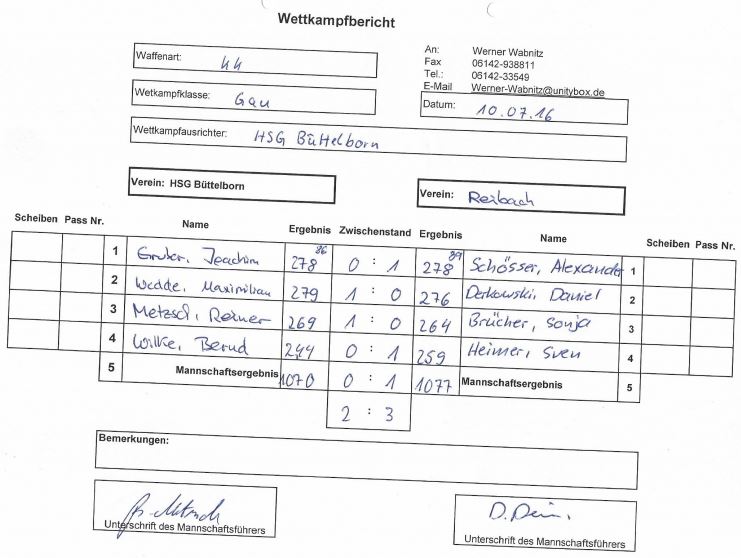 Wettkampfbericht
Waffenart: KK
An: Werner Wabnitz
Fax 06142-938811
Tel.: 06142-33549
E-Mail Werner-Wabnitz@unitybox.de
Wetkampfklasse: Gau
Datum: 10.07.16
Wettkampfausrichter: HSG Büttelborn
Verein: HSG Büttelborn
Verein: Reibach
Scheiben Pass Nr. Name Ergebnis Zwischenstand Ergebnis Name Scheiben Pass Nr.
1 Gruber, Joachim 278 86 0 : 1 278 89 Schösser, Alexander 1
2 Wedde, Maximilian 279 1 : 0 276 Derkowski, Daniel 2
3 Metzsch, Reiner 269 1 : 0 264 Brücher, Sonja 3
4 Wilke, Bernd 244 0 : 1 259 Heimer, Sven 4
5 Mannschaftsergebnis 1070 0 : 1 1077 Mannschaftsergebnis 5
2 : 3
Bemerkungen:
Unterschrift des Mannschaftsführers
D.
Unterschrift des Mannschaftsführers